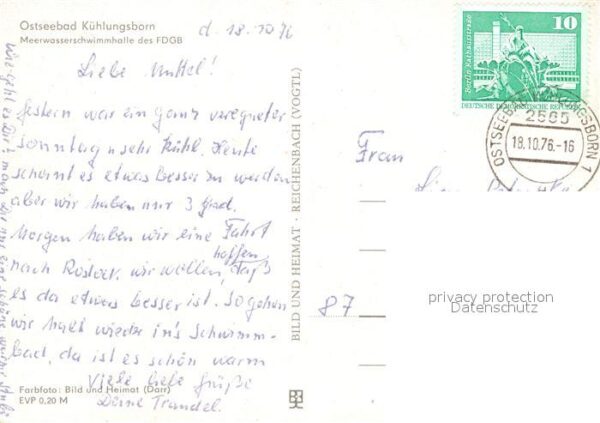 Ostseebad Kühlungsborn
Meerwasserschwimmhalle des FDGB
d. 18.10.76
Liebe Muttel!
Gestern war ein ganz verregneter
Sonntag u. sehr kühl. Heute
scheint es etwas besser zu werden
aber wir haben nur 3 Grad.
Morgen haben wir eine Fahrt
nach Rostock. wir wollen hoffen, daß
es da etwas besser ist. So gehen
wir halt wieder in's Schwimm-
bad, da ist es schön warm
Viele liebe Grüße
Deine Traudel.
Wie geht es Dir?
Farbfoto: Bild und Heimat (Darr)
EVP 0,20 M
BILD UND HEIMAT · REICHENBACH (VOGTL)
10
Berlin Rathausstraße
DEUTSCHE DEMOKRATISCHE REPUBLIK
OSTSEEBAD KÜHLUNGSBORN 1
2565
18.10.76-16
Frau
87
privacy protection
Datenschutz